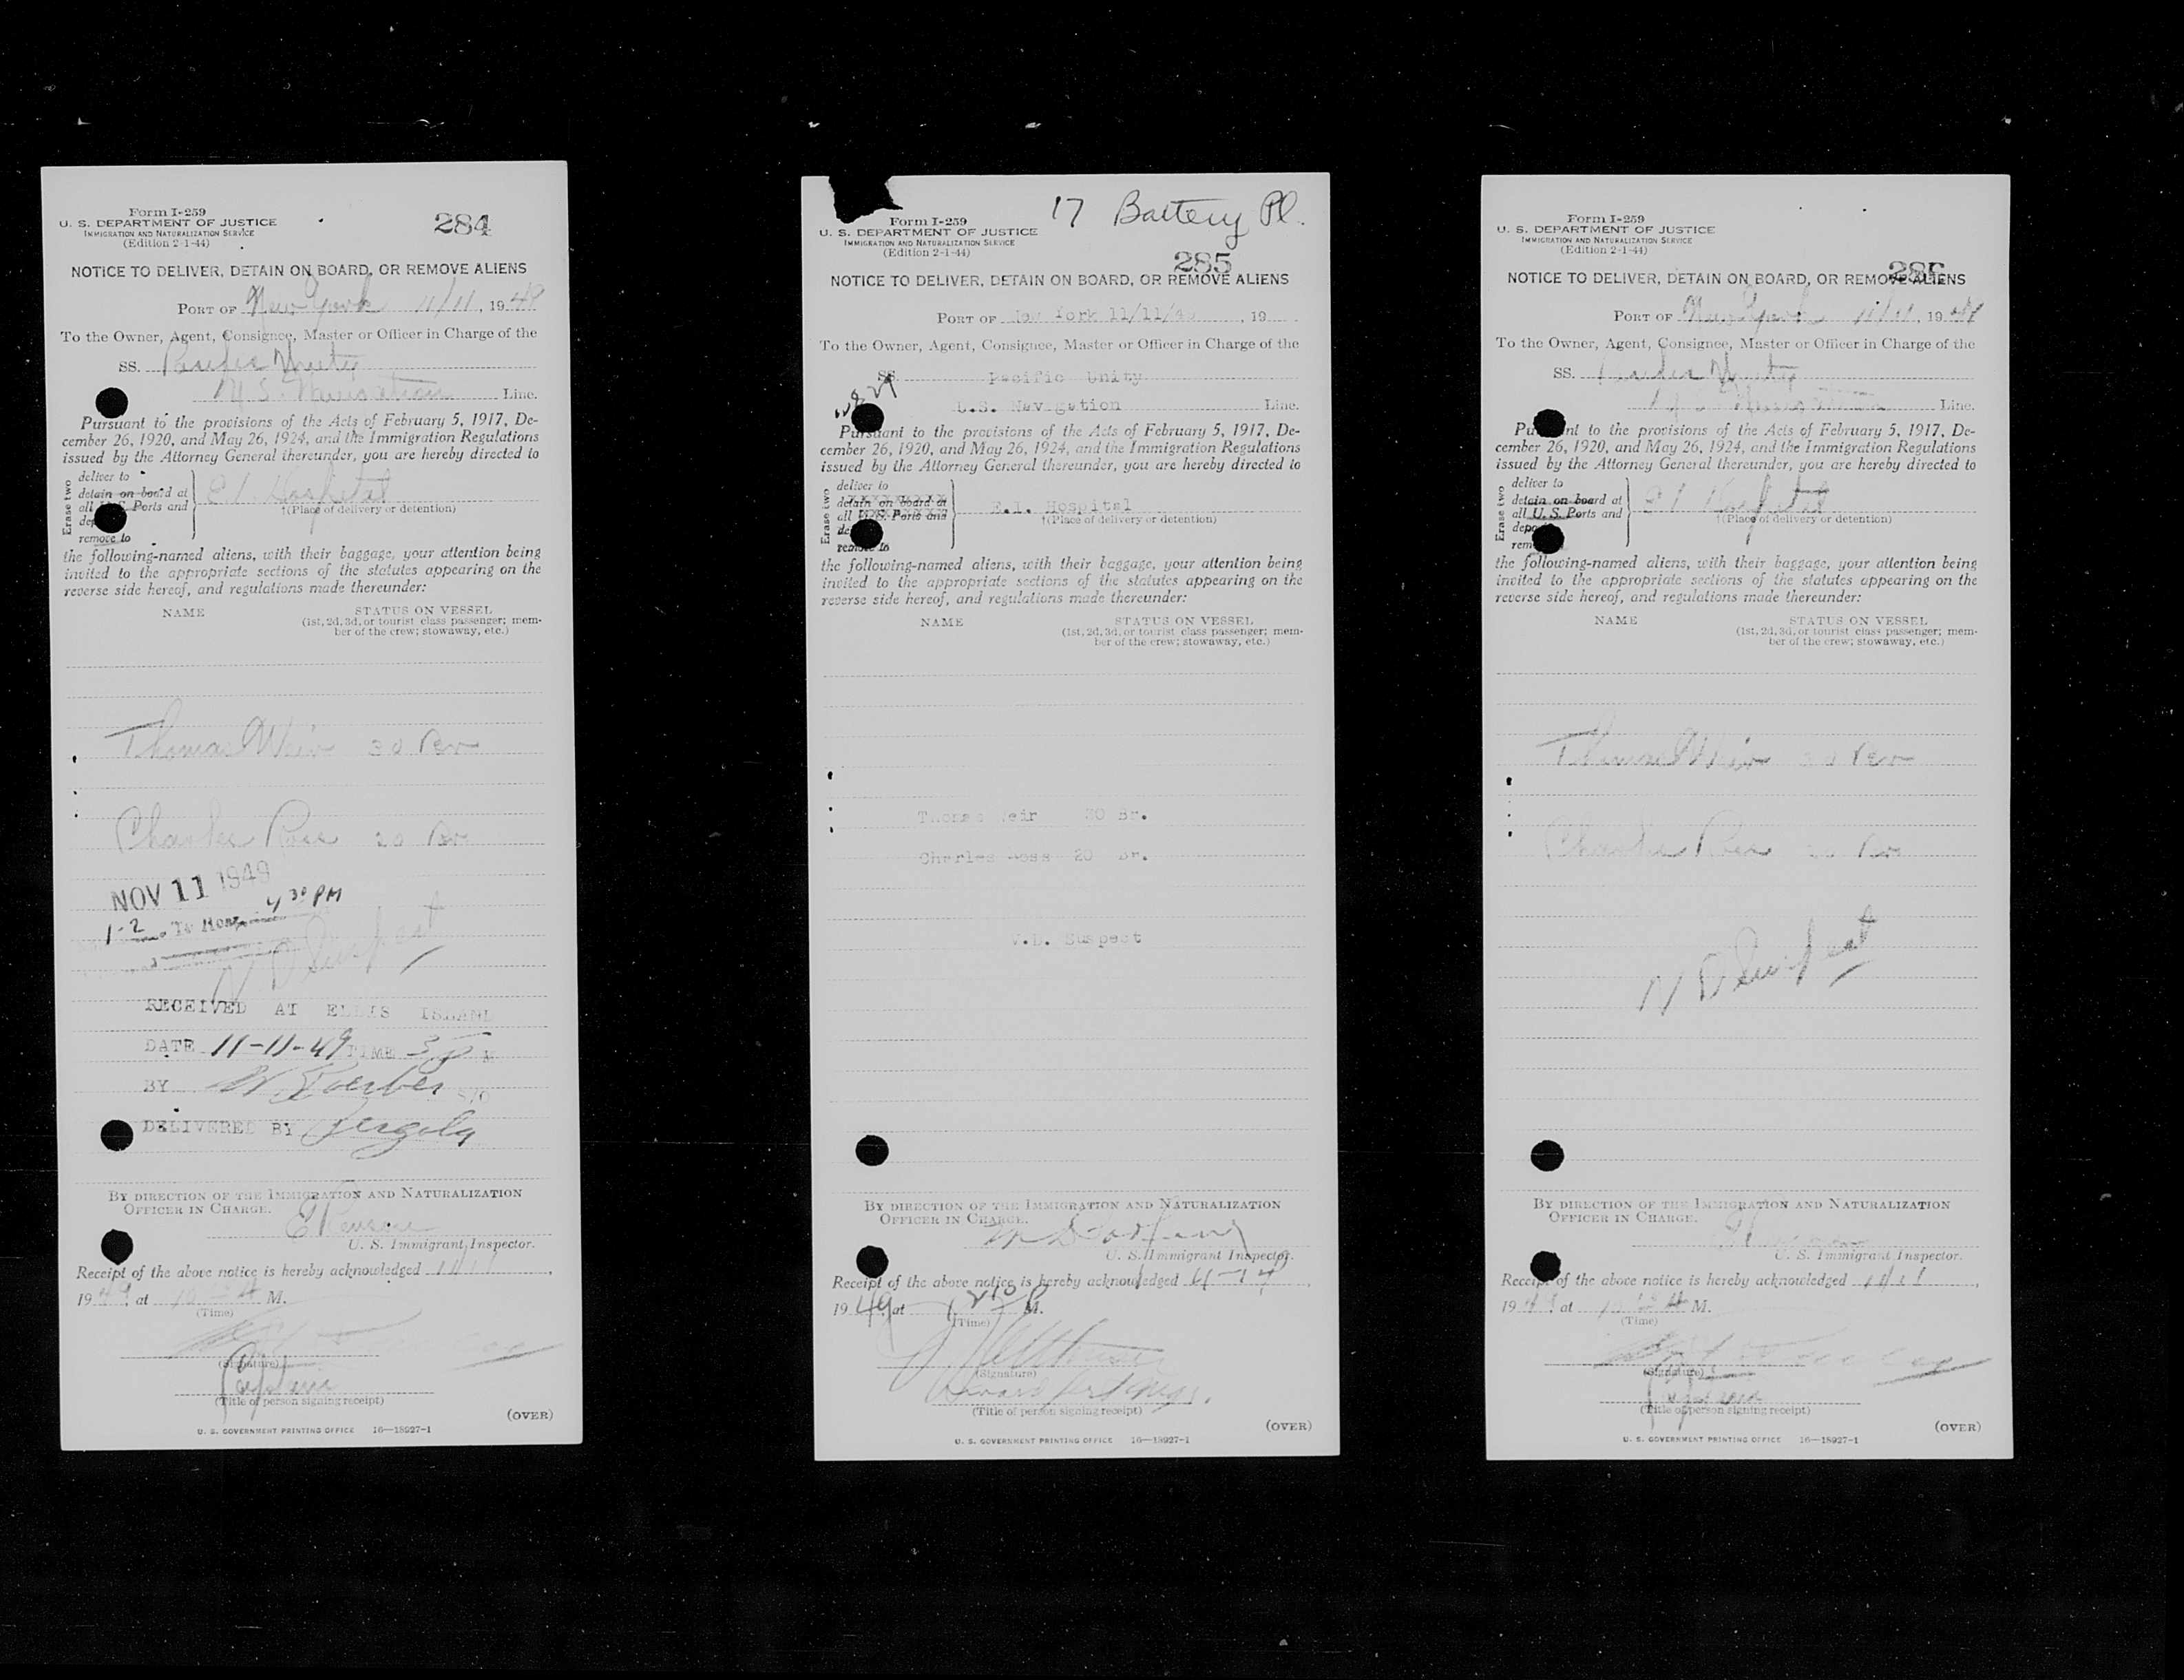 Form I-259
U. S. DEPARTMENT OF JUSTICE
IMMIGRATION AND NATURALIZATION SERVICE
(Edition 2-1-44)
284
NOTICE TO DELIVER, DETAIN ON BOARD, OR REMOVE ALIENS
PORT OF New York 11/11, 1949
To the Owner, Agent, Consignee, Master or Officer in Charge of the
SS. Pacific Unity
U.S. Navigation Line.
Pursuant to the provisions of the Acts of February 5, 1917, De-
cember 26, 1920, and May 26, 1924, and the Immigration Regulations
issued by the Attorney General thereunder, you are hereby directed to
Erase two
deliver to
detain on board at
all U. S. Ports and
remove to
E I Hospital
†(Place of delivery or detention)
the following-named aliens, with their baggage, your attention being
invited to the appropriate sections of the statutes appearing on the
reverse side hereof, and regulations made thereunder:
NAME STATUS ON VESSEL
(1st, 2d, 3d, or tourist class passenger; mem-
ber of the crew; stowaway, etc.)
Thomas Weir 30 Br
Charles Ross 20 Br
NOV 11 1949
1-2 To Hosp 4 30 PM
V D Suspect
RECEIVED AT ELLIS ISLAND
DATE 11-11-49 TIME M
BY W. Koerber
DELIVERED BY
BY DIRECTION OF THE IMMIGRATION AND NATURALIZATION
OFFICER IN CHARGE.
U. S. Immigrant Inspector.
Receipt of the above notice is hereby acknowledged 11/11,
1949, at M.
(Time)
(Signature)
Captain
(Title of person signing receipt)
(OVER)
U. S. GOVERNMENT PRINTING OFFICE 16—18927-1
17 Battery Pl.
Form I-259
U. S. DEPARTMENT OF JUSTICE
IMMIGRATION AND NATURALIZATION SERVICE
(Edition 2-1-44)
285
NOTICE TO DELIVER, DETAIN ON BOARD, OR REMOVE ALIENS
PORT OF New York 11/11/49, 19
To the Owner, Agent, Consignee, Master or Officer in Charge of the
SS. Pacific Unity
U.S. Navigation Line.
Pursuant to the provisions of the Acts of February 5, 1917, De-
cember 26, 1920, and May 26, 1924, and the Immigration Regulations
issued by the Attorney General thereunder, you are hereby directed to
Erase two
deliver to
detain on board at
all U. S. Ports and
remove to
E.I. Hospital
†(Place of delivery or detention)
the following-named aliens, with their baggage, your attention being
invited to the appropriate sections of the statutes appearing on the
reverse side hereof, and regulations made thereunder:
NAME STATUS ON VESSEL
(1st, 2d, 3d, or tourist class passenger; mem-
ber of the crew; stowaway, etc.)
Thomas Weir 30 Br.
Charles Ross 20 Br.
V.D. Suspect
BY DIRECTION OF THE IMMIGRATION AND NATURALIZATION
OFFICER IN CHARGE.
U. S. Immigrant Inspector.
Receipt of the above notice is hereby acknowledged
1949 at M.
(Time)
(Signature)
(Title of person signing receipt)
(OVER)
U. S. GOVERNMENT PRINTING OFFICE 16—18927-1
Form I-259
U. S. DEPARTMENT OF JUSTICE
IMMIGRATION AND NATURALIZATION SERVICE
(Edition 2-1-44)
NOTICE TO DELIVER, DETAIN ON BOARD, OR REMOVE ALIENS
PORT OF New York 11/11, 1949
To the Owner, Agent, Consignee, Master or Officer in Charge of the
SS. Pacific Unity
U S Navigation Line.
Pursuant to the provisions of the Acts of February 5, 1917, De-
cember 26, 1920, and May 26, 1924, and the Immigration Regulations
issued by the Attorney General thereunder, you are hereby directed to
Erase two
deliver to
detain on board at
all U. S. Ports and
E I Hospital
†(Place of delivery or detention)
the following-named aliens, with their baggage, your attention being
invited to the appropriate sections of the statutes appearing on the
reverse side hereof, and regulations made thereunder:
NAME STATUS ON VESSEL
(1st, 2d, 3d, or tourist class passenger; mem-
ber of the crew; stowaway, etc.)
Thomas Weir 30 Br
Charles Ross 20 Br
V D Suspect
BY DIRECTION OF THE IMMIGRATION AND NATURALIZATION
OFFICER IN CHARGE.
U. S. Immigrant Inspector.
Receipt of the above notice is hereby acknowledged 11/11,
1949, at M.
(Time)
(Signature)
Captain
(Title of person signing receipt)
(OVER)
U. S. GOVERNMENT PRINTING OFFICE 16—18927-1